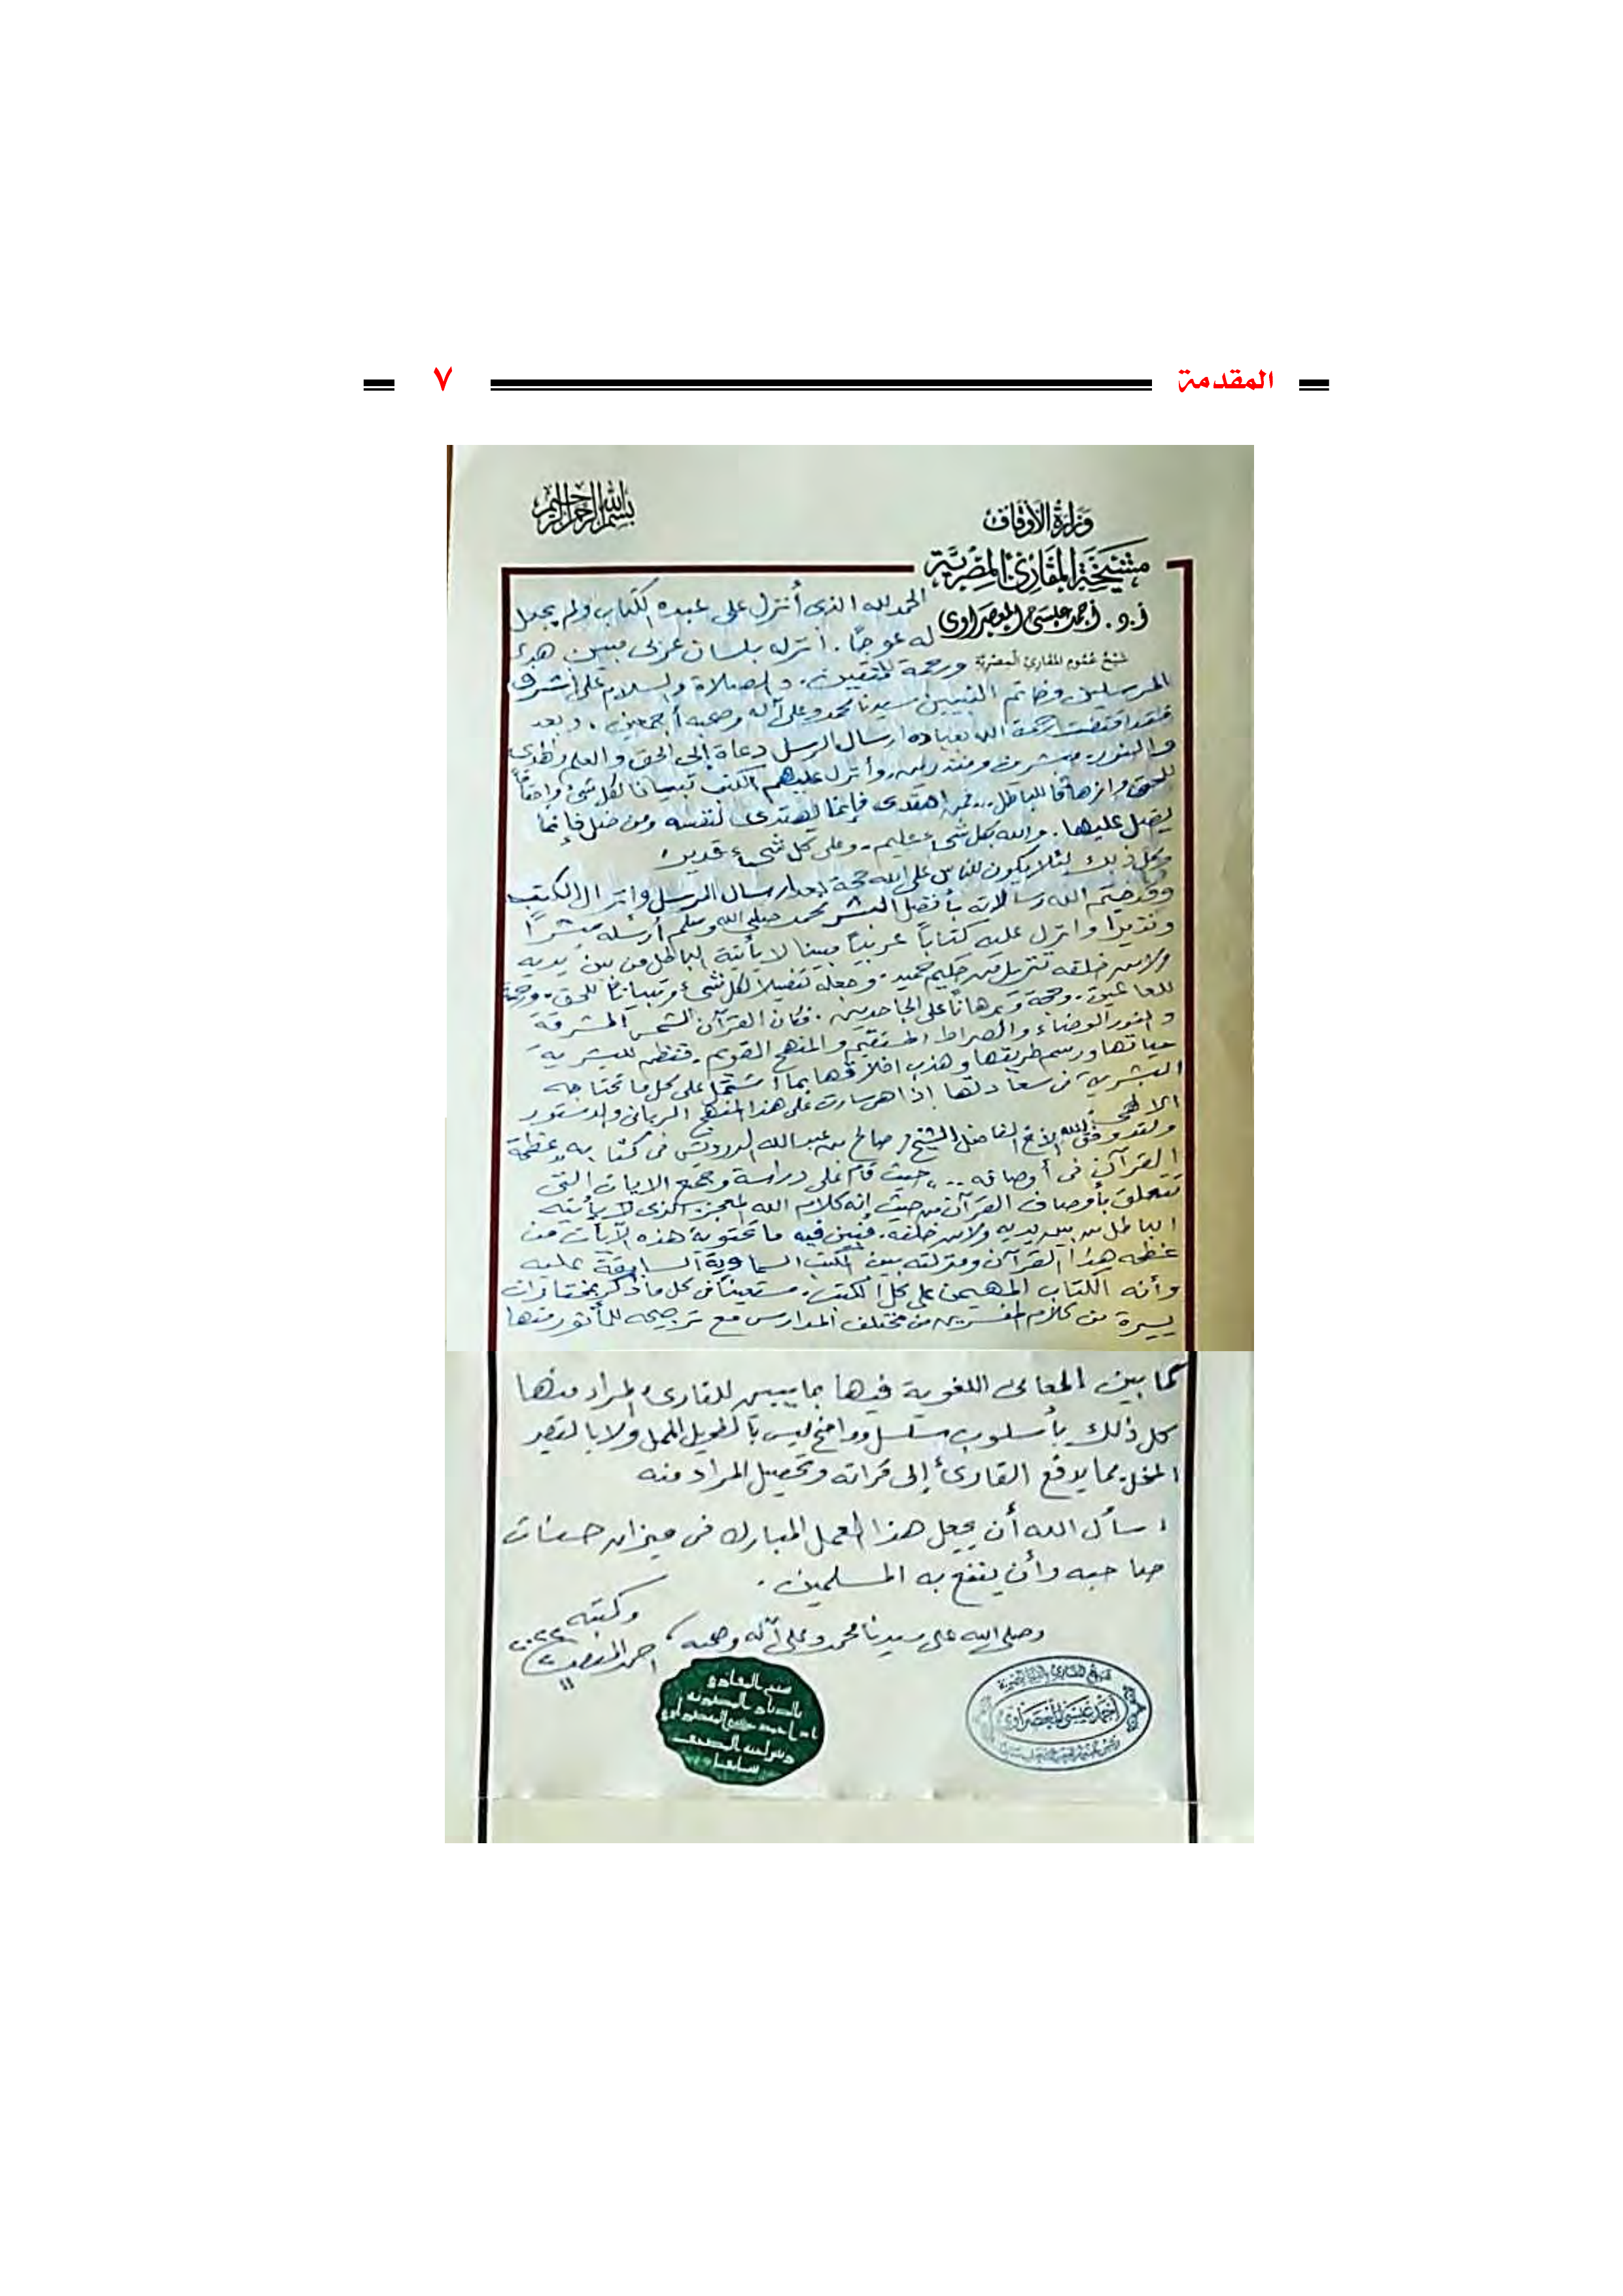 المقدمة ٧
بسم الله الرحمن الرحيم
وزارة الأوقاف
مشيخة المقارئ المصرية
أ.د. أحمد عيسى المعصراوى
شيخ عموم المقارئ المصرية
الحمد لله الذى أنزل على عبده الكتاب ولم يجعل
له عوجًا. أنزله بلسان عربى مبين هدى
ورحمة للمتقين. والصلاة والسلام على أشرف
المرسلين وخاتم النبيين سيدنا محمد وعلى آله وصحبه أجمعين. وبعد
فلقد اقتضت رحمة الله بعباده ارسال الرسل دعاة إلى الحق والعلم والهدى
والنور مبشرين ومنذرين، وأنزل عليهم الكتب تبيانا لكل شئ واحقاقاً
للحق وازهاقا للباطل.. فمن اهتدى فإنما يهتدى لنفسه ومن ضل فإنما
يضل عليها. والله بكل شئ عليم. وعلى كل شئ قدير.
وكل ذلك لئلا يكون للناس على الله حجة بعد ارسال الرسل وانزال الكتب
وقد ختم الله رسالاته بأفضل البشر محمد صلى الله وسلم أرسله مبشرًا
ونذيرًا وانزل عليه كتاباً عربياً مبينا لا يأتيه الباطل من بين يديه
ولا من خلفه تنزيل من حكيم حميد. وجعله تفصيلا لكل شئ وتبيانا للحق. ورحمة
للعالمين. وحجة وبرهاناً على الجاحدين. فكان القرآن الشمس المشرقة
والنور الوضاء والصراط المستقيم والمنهج القويم. فنظم للبشرية
حياتها ورسم طريقها وهذب اخلاقها بما اشتمل على كل ما تحتاجه
البشرية فى سعادتها إذا هى سارت على هذا المنهج الربانى والدستور
الالهى
ولقد وفق الله الأخ الفاضل الشيخ/ صالح بن عبدالله الدرويش فى كتابه "عظمة
القرآن فى أوصافه .." حيث قام على دراسة وجمع الايات التى
تتعلق بأوصاف القرآن من حيث إنه كلام الله المعجز الذى لا يأتيه
الباطل من بين يديه ولا من خلفه. فبين فيه ما تحتويه هذه الآيات من
عظمه هذا القرآن ومنزلته بين الكتب السماوية السابقة عليه
وأنه الكتاب المهيمن على كل الكتب. مستعيناً فى كل ما ذكر بمختارات
يسيرة من كلام المفسرين من مختلف المدارس مع ترجيحه للمأثور منها
كما بين المعانى اللغوية فيها بما يبين للقارئ المراد منها
كل ذلك بأسلوب سلس وواضح ليس بالطويل الممل ولا بالقصير
المخل. مما يدفع القارئ إلى قراءته وتحصيل المراد منه
اسأل الله أن يجعل هذا العمل المبارك فى ميزان حسنات
صاحبه وأن ينفع به المسلمين.
وصلى الله على سيدنا محمد وعلى آله وصحبه
وكتبه
احمد المعصراوى
أحمد عيسى المعصراوى